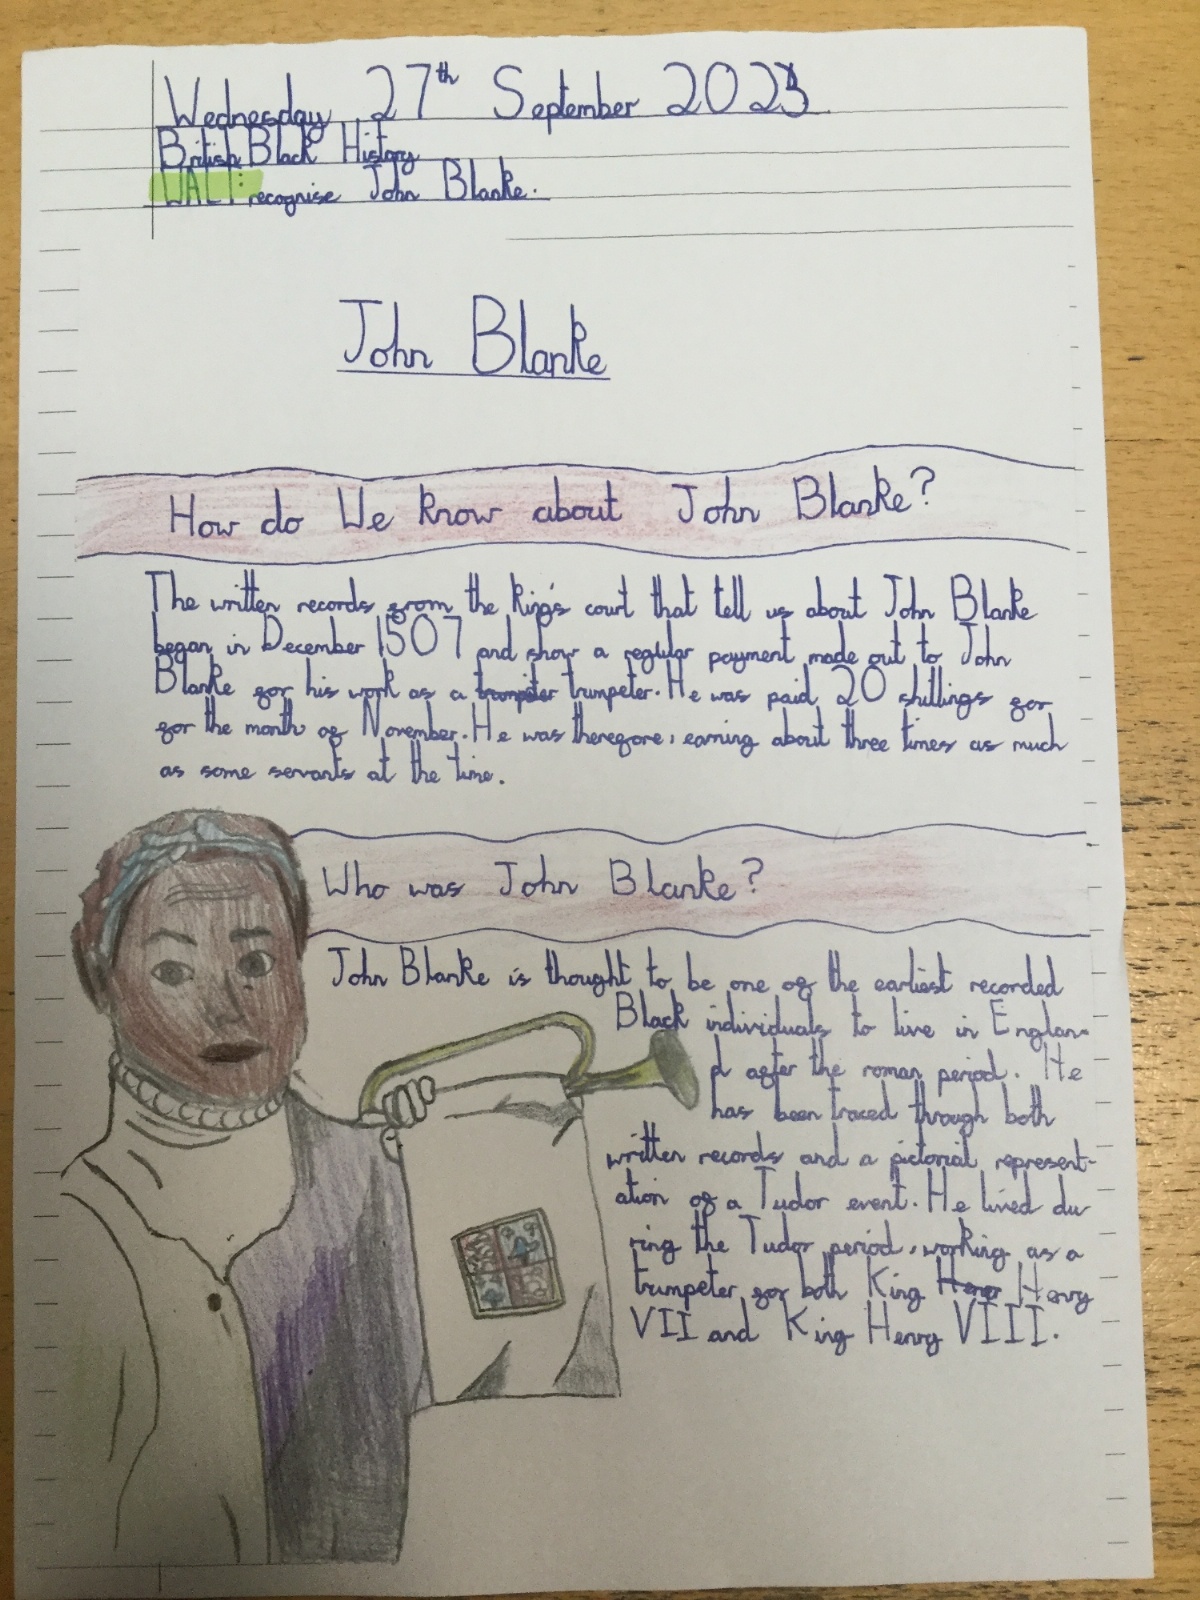 Wednesday 27th September 2023
British Black History
WALT: recognise John Blanke.
John Blanke
How do We know about John Blanke?
The written records from the king's court that tell us about John Blanke
began in December 1507 and show a regular payment made out to John
Blanke for his work as a trumpiter trumpeter. He was paid 20 shillings for
for the month of November. He was therefore, earning about three times as much
as some servants at the time.
Who was John Blanke?
John Blanke is thought to be one of the earliest recorded
Black individuals to live in Englan-
d after the roman period. He
has been traced through both
written records and a pictorial represent-
ation of a Tudor event. He lived du
ring the Tudor period, working as a
trumpeter for both King Henry
VII and King Henry VIII.